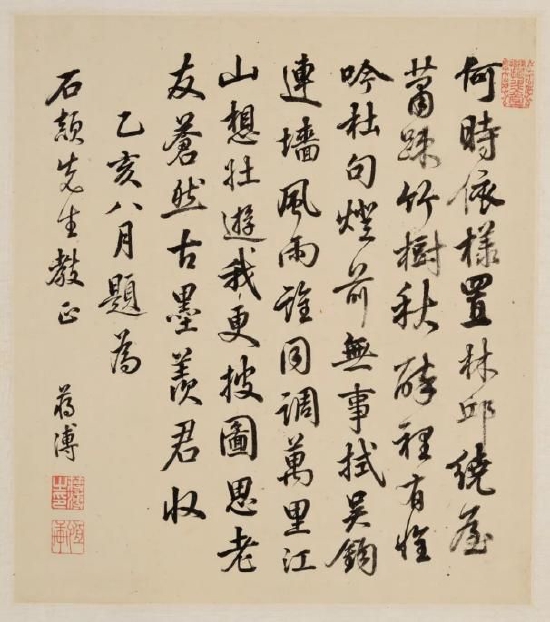 何時依樣置林邱繞屋
蕭踈竹樹秋醉裡有懷
吟杜句燈前無事拭吳鉤
連墻風雨誰同調萬里江
山想壯遊我更披圖思老
友蒼然古墨羨君收
乙亥八月題為
石先生教正
蔣溥